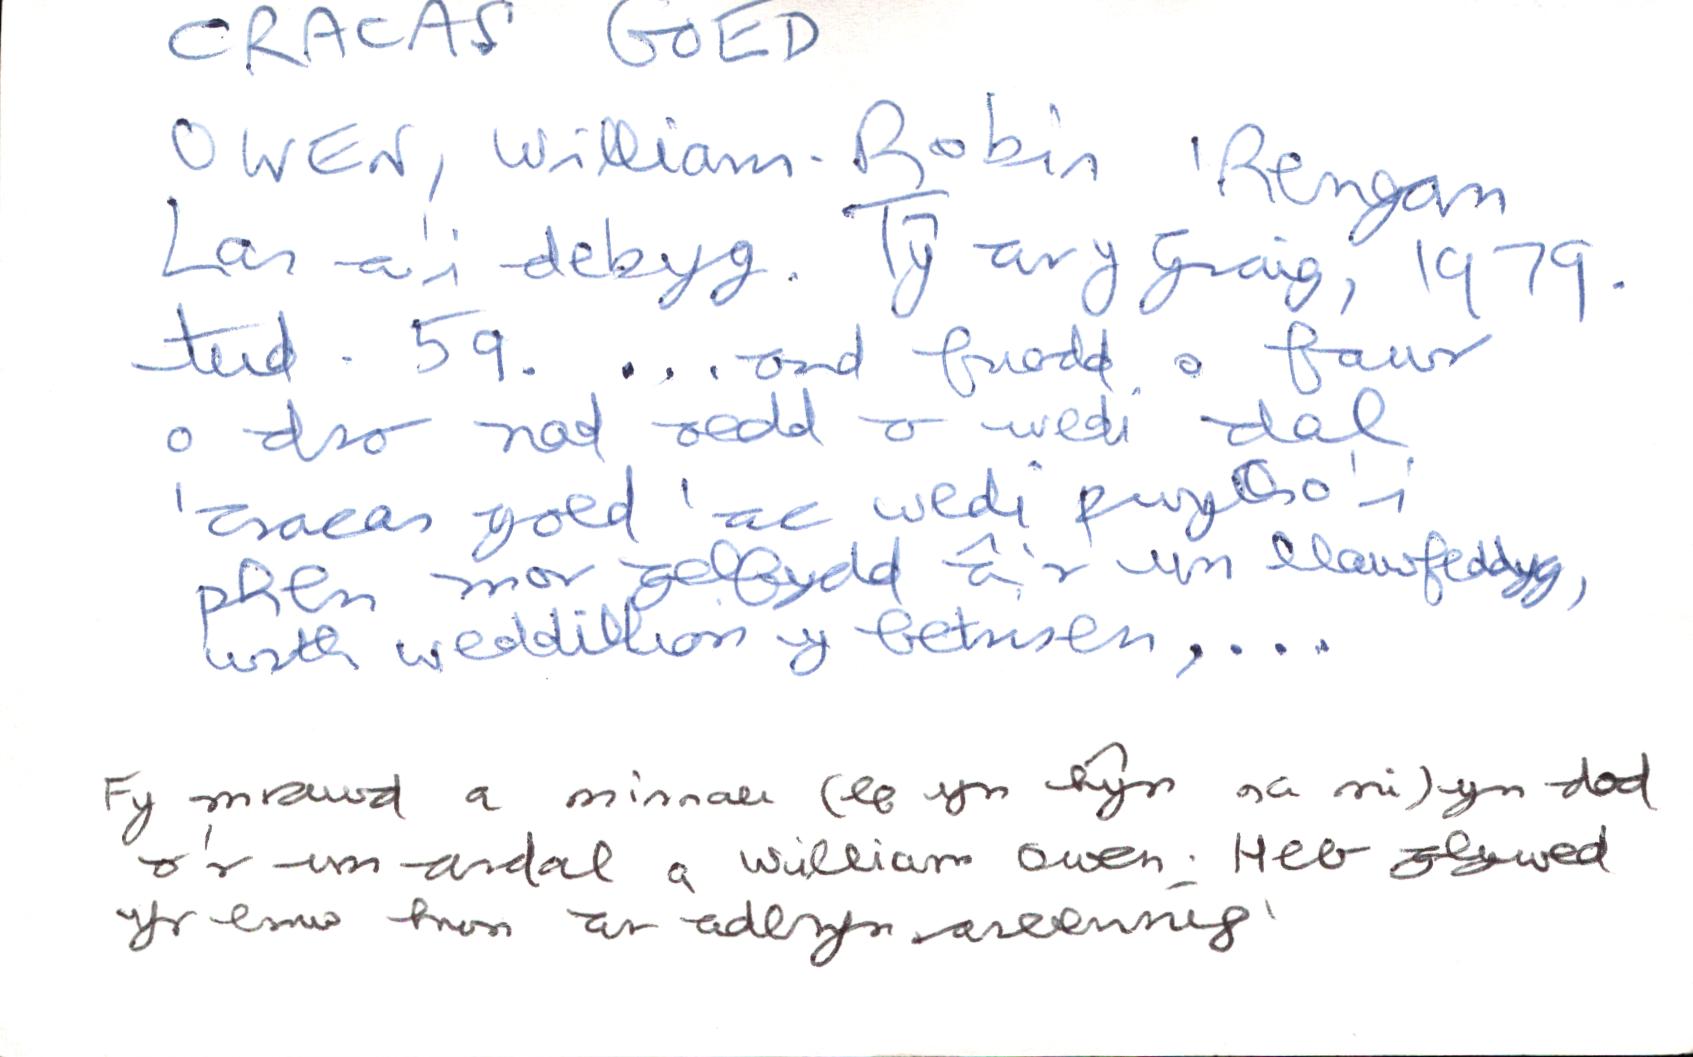 CRACAS GOED
OWEN, William. Robin 'Rengan
Las a'i debyg. Tŷ ar y Graig, 1979.
tud. 59. ....ond fuodd o fawr
o dro nad oedd o wedi dal
'cracas goed' ac wedi pwytho'i
phen mor gelfydd â'r un llawfeddyg,
wrth weddillion y betrisen,....
Fy mrawd a minnau (lle yn hŷn na ni) yn dod
o'r un ardal a William Owen. Heb glywed
yr enw hwn ar aderyn